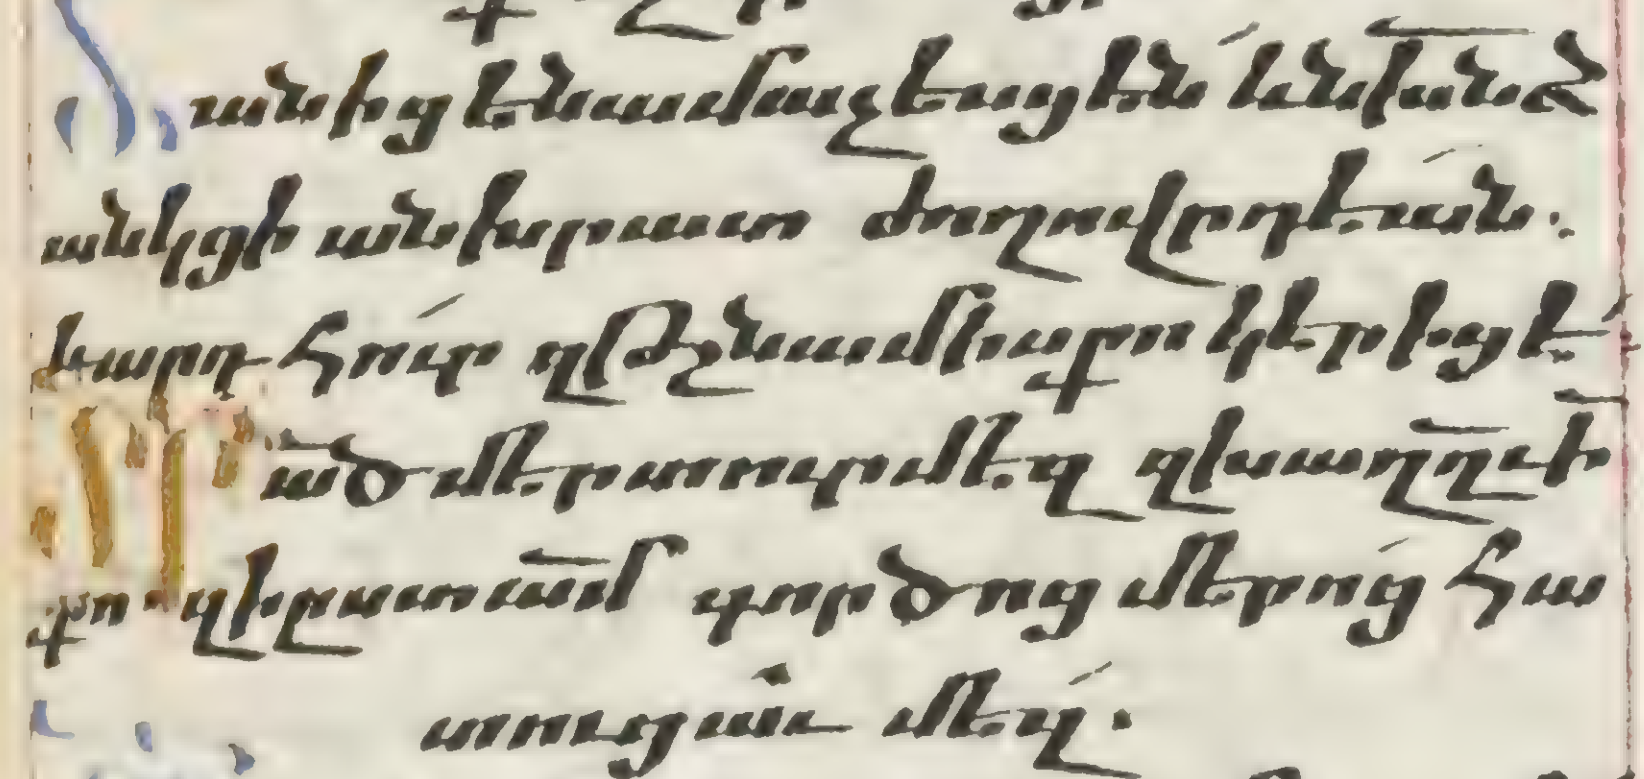 Ծանիցեն ամաչեսցեն նախանձ
անկցի անխրատ ժողովրդեան.
և արդ հուր զթշնամիս քո կերիցէ
Տր ած մեր տուր մեզ զխաղղի
քո զի ըստ ամ գործոց մերոց հա
տուցաւ մեզ.